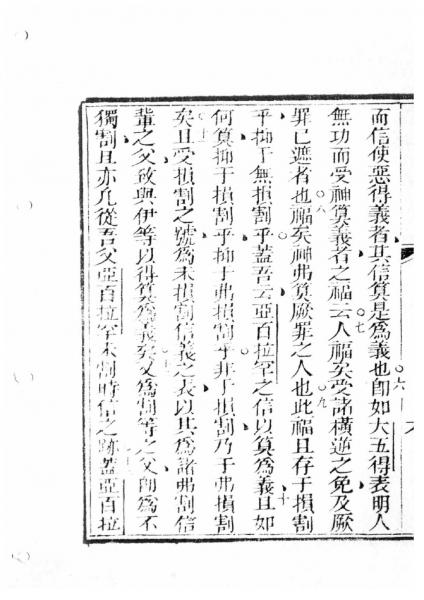 而信使惡得義者其信算是為義也即如大五得表明人
無功而受神算義者之福云人福矣受諸橫逆之免及厥
罪已遮者也福矣神弗算厥罪之人也此福且存于損割
乎抑于無損割乎蓋吾云亞百拉罕之信以算為義且如
何算抑于損割乎抑于弗損割乎非于損割乃于弗損割
矣且受損割之號為未損割信義之表以其為諸弗割信
輩之父致與伊等以得算為義矣又為割等之父即為不
獨割且亦凡從吾父亞百拉罕未割時信之跡蓋亞百拉